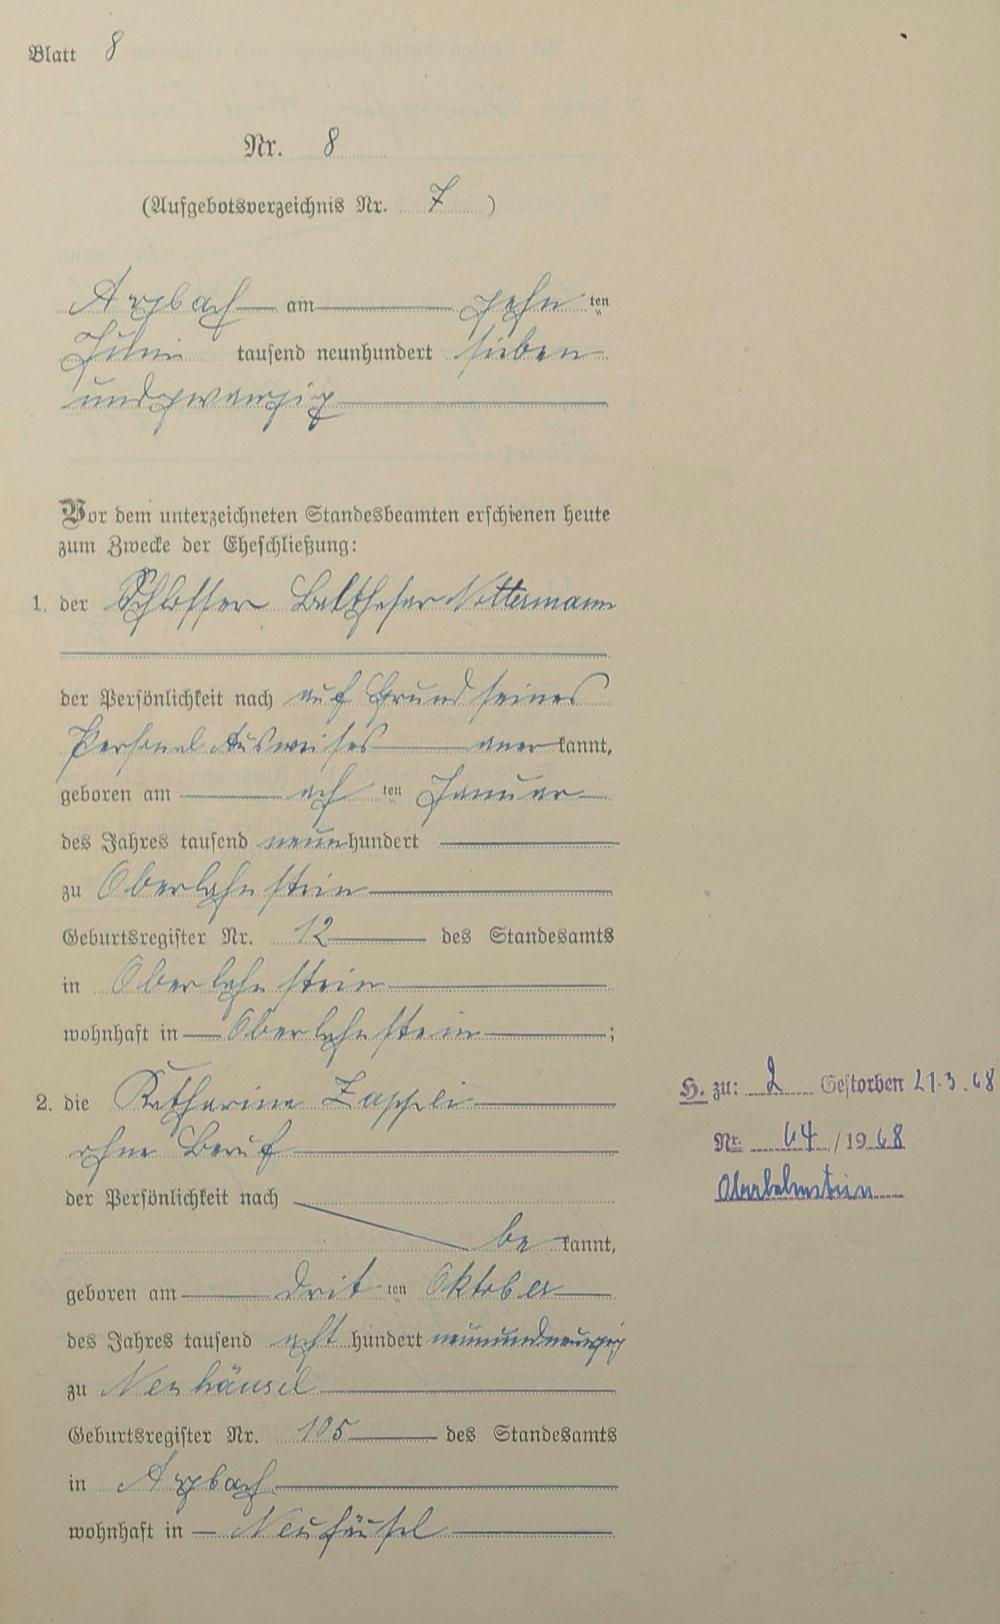 Blatt 8
Nr. 8
(Aufgebotsverzeichnis Nr. 7)
Arzbach am zehn ten
Juni tausend neunhundert sieben
undzwanzig
Vor dem unterzeichneten Standesbeamten erschienen heute
zum Zwecke der Eheschließung:
1. der Schlosser Balthasar Nottermann
der Persönlichkeit nach auf Grund seines
Personal Ausweises aner kannt,
geboren am ach ten Januar
des Jahres tausend neun hundert
zu Oberlahnstein
Geburtsregister Nr. 12 des Standesamts
in Oberlahnstein
wohnhaft in Oberlahnstein;
2. die Katharine Zappei
ohne Beruf
der Persönlichkeit nach
be kannt,
geboren am drit ten Oktober
des Jahres tausend acht hundert neunundneunzig
zu Neuhäusel
Geburtsregister Nr. 105 des Standesamts
in Arzbach
wohnhaft in Neuhäusel
H. zu: 2 Gestorben 21.3.68
Nr. 64 / 1968
Oberlahnstein